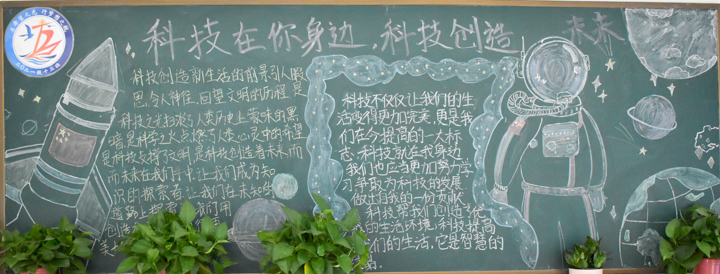 科技在你身边，科技创造未来
科技创造新生活的前景引人暇
思，令人神往，回望文明的历程是
科技之光扫水了人类历史上蒙昧的黑
暗，是科学之火点燃了人类心灵中的希望
是科技支撑了文明，是科技创造着未来，而
而未来在我们手中，让我们成为知
识的探索者，让我们在未知的
道路上探索，我们用
创造
科技不仅仅让我们的生
活变得更加完美，更是我
们在今提高的一大标
志，科技就在我身边
我们也应当更加努力学
习，争取为科技的发展
做出自我的一份贡献
科技帮我们创造了优
的生活环境，科技提高
们的生活，它是智慧的